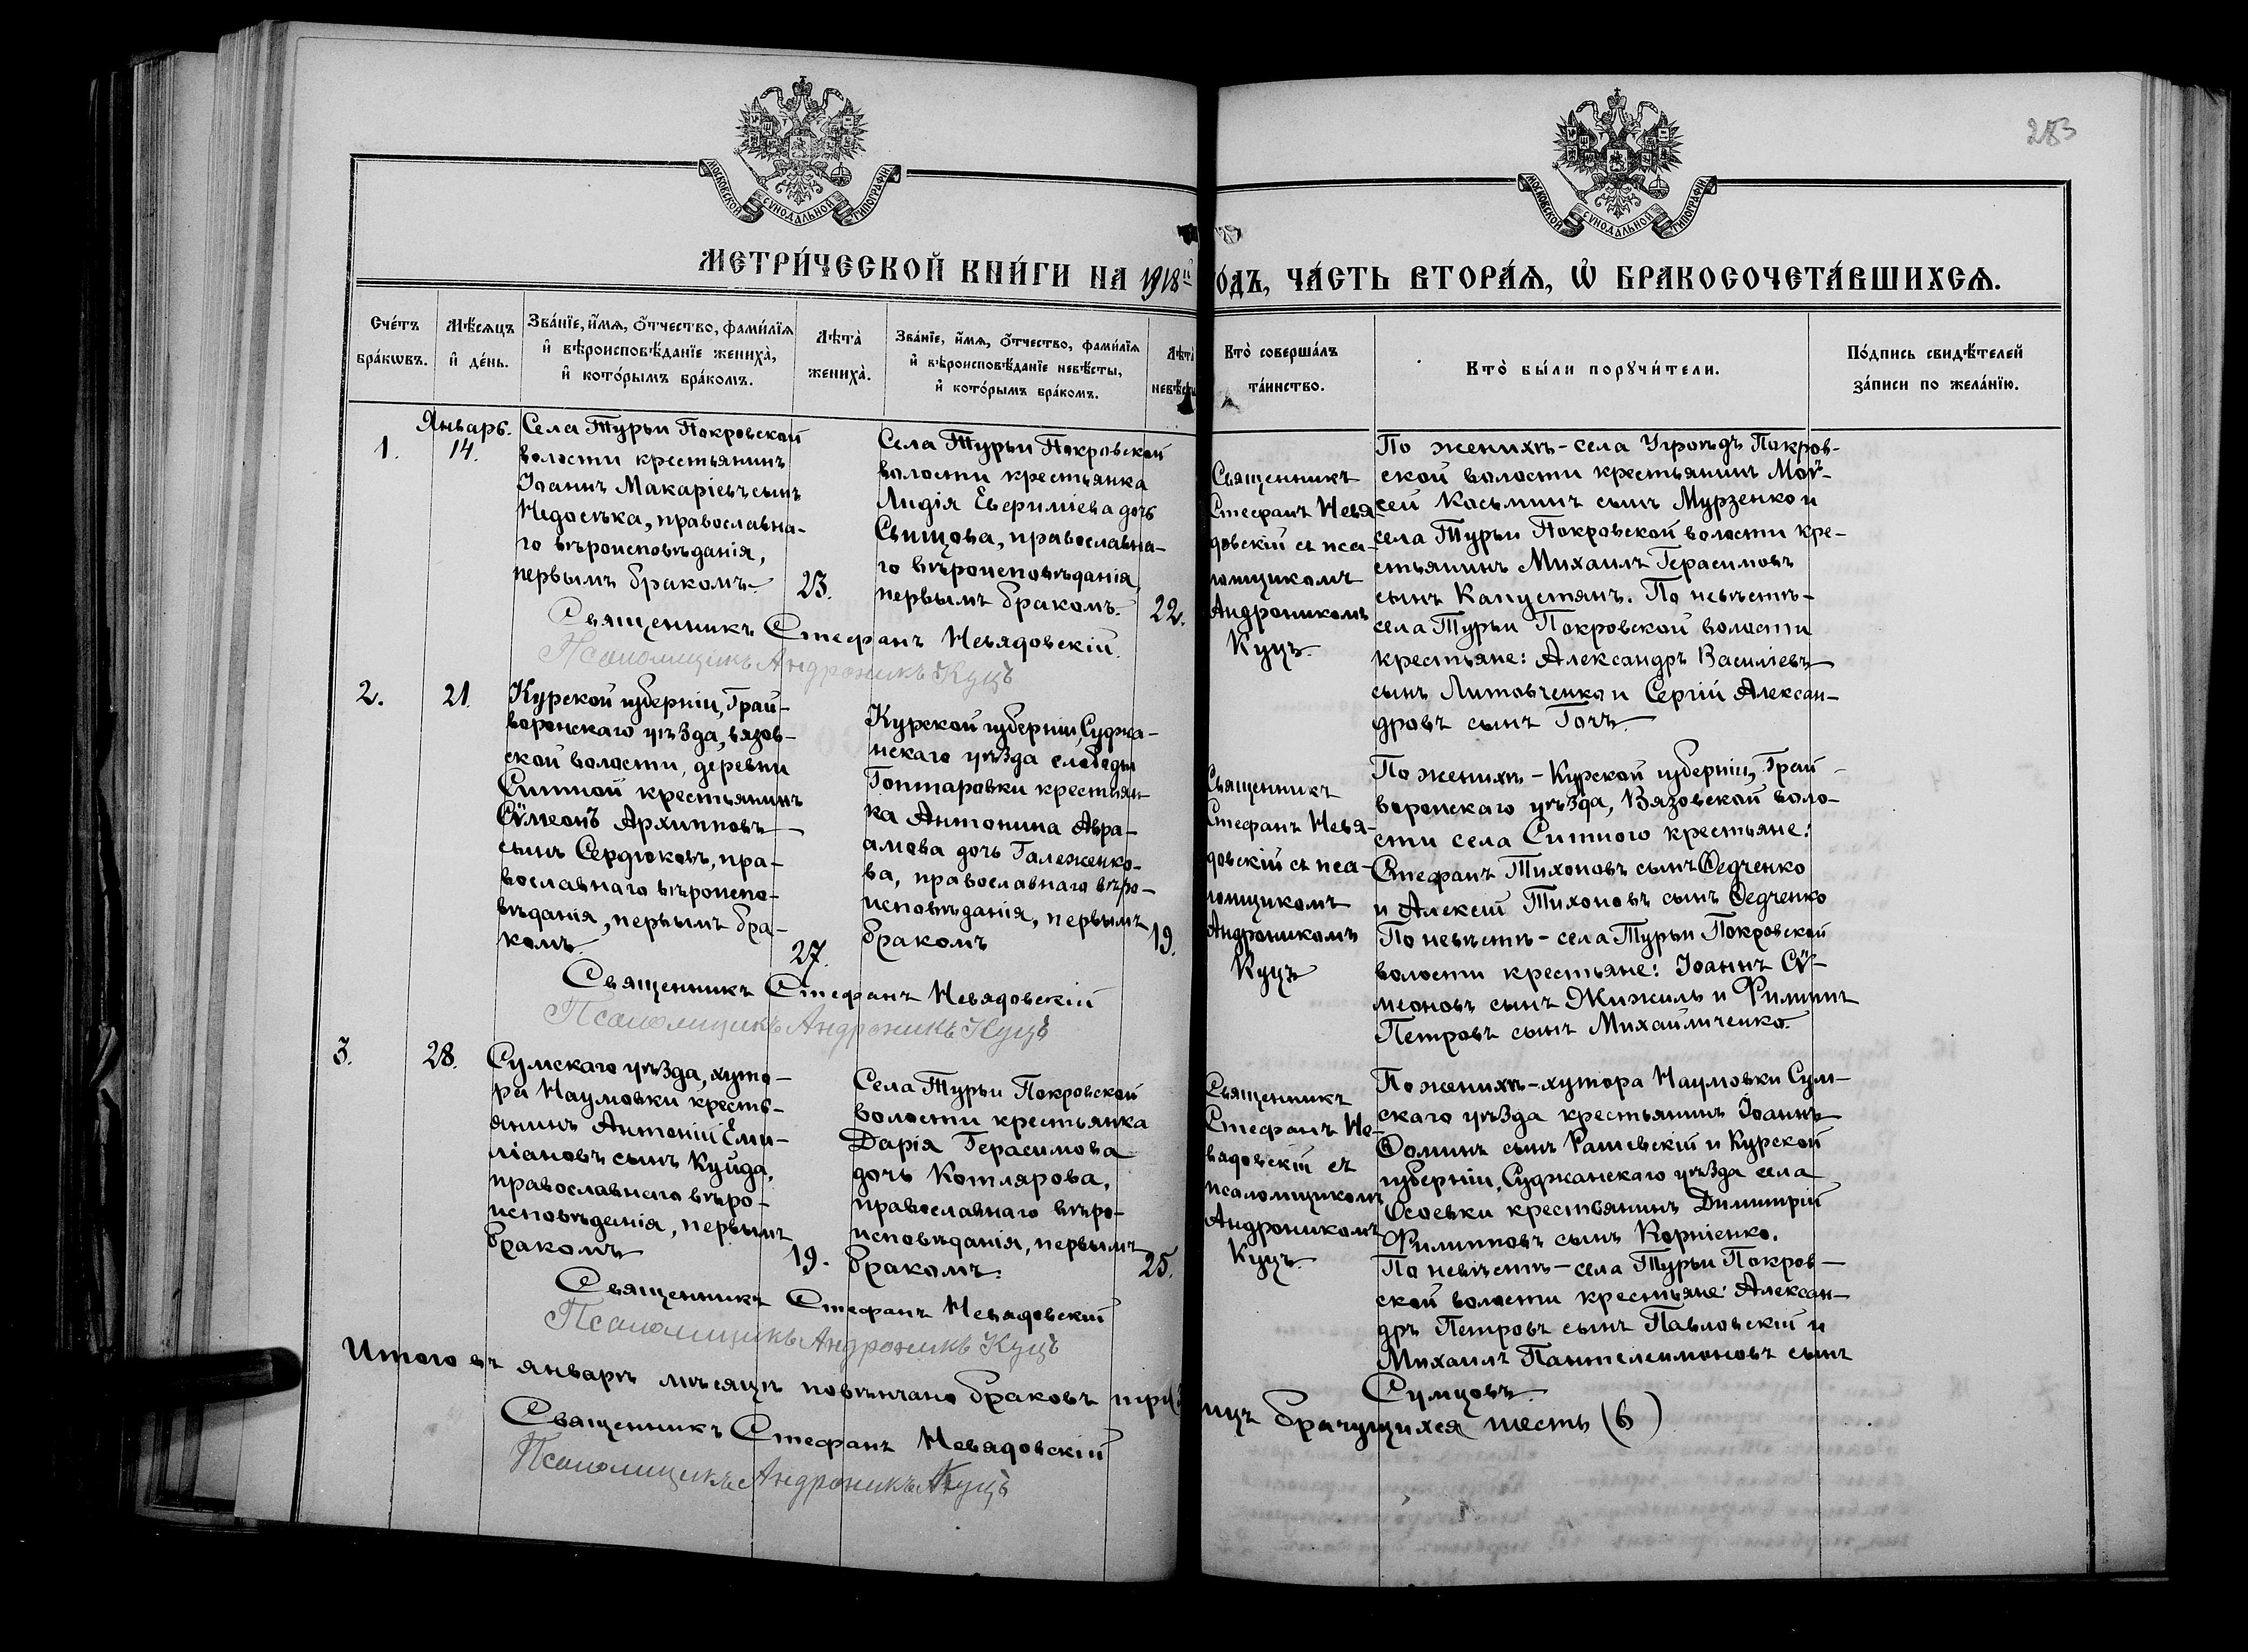 МОСКОВСКОЙ СѴНОДАЛЬНОЙ ТИПОГРАФІИ
МОСКОВСКОЙ СѴНОДАЛЬНОЙ ТИПОГРАФІИ
283
МЕТРИ́ЧЕСКОЙ КНИ́ГИ НА 1918й ГО́ДЪ, ЧА́СТЬ ВТОРА́Ѧ, Ѽ БРАКОСОЧЕТА́ВШИХСѦ.
Сче́тъ
бра́кѡвъ.
Мѣ́сѧцъ
и҆ де́нь.
Зва́нїе, и҆́мѧ, ѻ҆́тчество, фами́лїѧ
и҆ вѣроисповѣ́данїе жениха̀,
и҆ кото́рымъ бра́комъ.
Лѣта̀
жениха̀.
Зва́нїе, и҆́мѧ, ѻ҆́тчество, фами́лїѧ
и҆ вѣроисповѣ́данїе невѣ́сты,
и҆ кото́рымъ бра́комъ.
Лѣта̀
невѣ́сты
Кто̀ соверша́лъ
та́инство.
Кто̀ бы́ли порꙋчи́тели.
По́дпись свидѣ́телей
за́писи по жела́нїю.
1.
Январь.
14.
Села Турьи Покровской
волости крестьянинъ
Іоаннъ Макаріевъ сынъ
Недосѣка, православна-
го вѣроисповѣданія,
первымъ бракомъ
23.
Села Турьи Покровской
волости крестьянка
Лидія Евфиміева дочь
Свищова, православна-
го вѣроисповѣданія,
первымъ бракомъ.
22.
Священникъ
Стефанъ Невя-
довскій съ пса-
ломщикомъ
Андроникомъ
Куцъ.
По женихѣ - села Угроѣдъ Покров-
ской волости крестьянинъ Моѵ-
сей Косьминъ сынъ Мурзенко и
села Турьи Покровской волости кре-
стьянинъ Михаилъ Герасимовъ
сынъ Капустянъ. По невѣстѣ -
села Турьи Покровской волости
крестьяне: Александръ Василіевъ
сынъ Литовченко и Сергій Алексан-
дровъ сынъ Гочъ.
Священникъ Стефанъ Невядовскій.
Псаломщикъ Андроникъ Куцъ
2.
21.
Курской губерніи, Грай-
воронскаго уѣзда, вязов-
ской волости, деревни
Ситной крестьянинъ
Сѵмеонъ Архипповъ
сынъ Сердюковъ, пра-
вославнаго вѣроиспо-
вѣданія, первымъ бра-
комъ.
27.
Курской губерніи, Суджа-
нскаго уѣзда слободы
Гоптаровки крестьян-
ка Антонина Авра-
амова дочь Галеженко-
ва, православнаго вѣро-
исповѣданія, первымъ
бракомъ
19.
Священникъ
Стефанъ Невя-
довскій съ пса-
ломщикомъ
Андроникомъ
Куцъ
По женихѣ - Курской губерніи, Грай-
воронскаго уѣзда, Вязовской воло-
сти села Ситного крестьяне:
Стефанъ Тихоновъ сынъ Ѳедченко
и Алексій Тихоновъ сынъ Ѳедченко
По невѣстѣ - села Турьи Покровской
волости крестьяне: Іоаннъ Сѵ-
меоновъ сынъ Жижиль и Филиппъ
Петровъ сынъ Михайличенко.
Священникъ Стефанъ Невядовскій
Псаломщикъ Андроникъ Куцъ
3.
28.
Сумскаго уѣзда, хуто-
ра Наумовки кресть-
янинъ Антоній Еми-
ліановъ сынъ Куйда,
православнаго вѣро-
исповѣданія, первымъ
бракомъ
19.
Села Турьи Покровской
волости крестьянка
Дарія Герасимова
дочь Котлярова,
православнаго вѣро-
исповѣданія, первымъ
бракомъ.
25.
Священникъ
Стефанъ Не-
вядовскій съ
псаломщикомъ
Андроникомъ
Куцъ.
По женихѣ - хутора Наумовки Сум-
скаго уѣзда крестьянинъ Іоаннъ
Ѳоминъ сынъ Рашевскій и Курской
губерніи, Суджанскаго уѣзда села
Осоевки крестьянинъ Димитрій
Филипповъ сынъ Корніенко.
По невѣстѣ - села Турьи Покров-
ской волости крестьяне: Алексан-
дръ Петровъ сынъ Павловскій и
Михаилъ Пантелеимоновъ сынъ
Сумцовъ.
Священникъ Стефанъ Невядовскій
Псаломщикъ Андроникъ Куцъ
Итого въ январѣ мѣсяцѣ повѣнчано браковъ три лицъ брачущихся шесть (6)
Священникъ Стефанъ Невядовскій
Псаломщикъ Андроникъ Куцъ